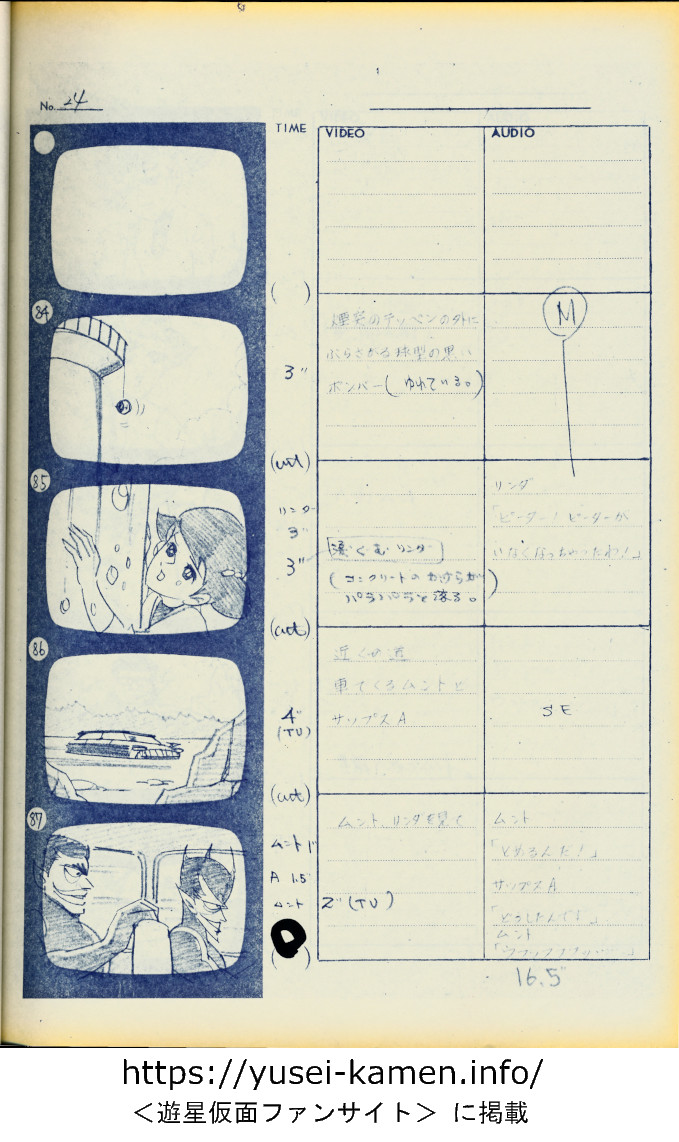 No. 24
TIME
VIDEO
AUDIO
( )
84
3"
(cut)
煙突のテッペンの外に
ぶらさがる球型の黒い
ボンバー(ゆれている。)
M
85
リンダ
3"
3"
(cut)
涙ぐむリンダ
(コンクリートのかけらが
パラパラと落る。)
リンダ
「ピーター!ピーターが
いなくなっちゃったわ!」
86
4"
(TU)
(cut)
近くの道
車でくるムントと
サップスA
SE
87
ムント1"
A 1.5"
ムント
2"(TU)
( )
ムント、リンダを見て
ムント
「とめるんだ!」
サップスA
「どうしたんです」
ムント
16.5"
https://yusei-kamen.info/
<遊星仮面ファンサイト> に掲載